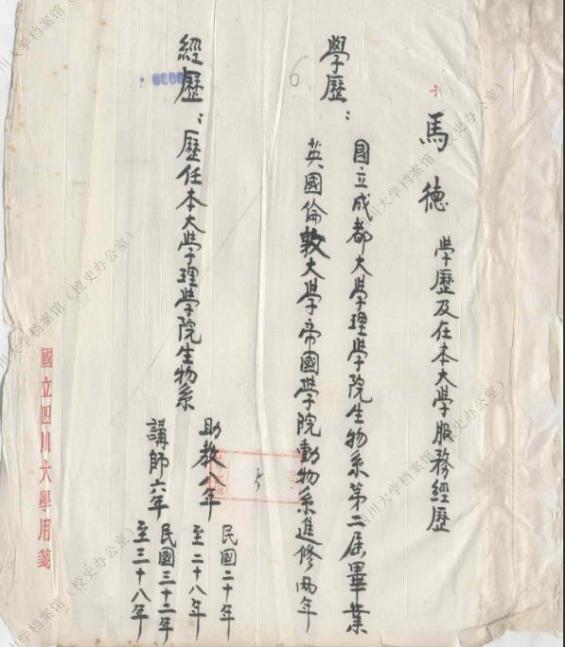 馬德 學歷及在本大學服務經歷
學歷：
國立成都大學理學院生物系第二屆畢業
英國倫敦大學帝國學院動物系進修兩年
6
經歷：歷任本大學理學院生物系
助教八年 民國二十年
至二十八年
講師六年 民國三十二年
至三十八年
5
國立四川大學用箋
川大学档案馆（校史办公室）